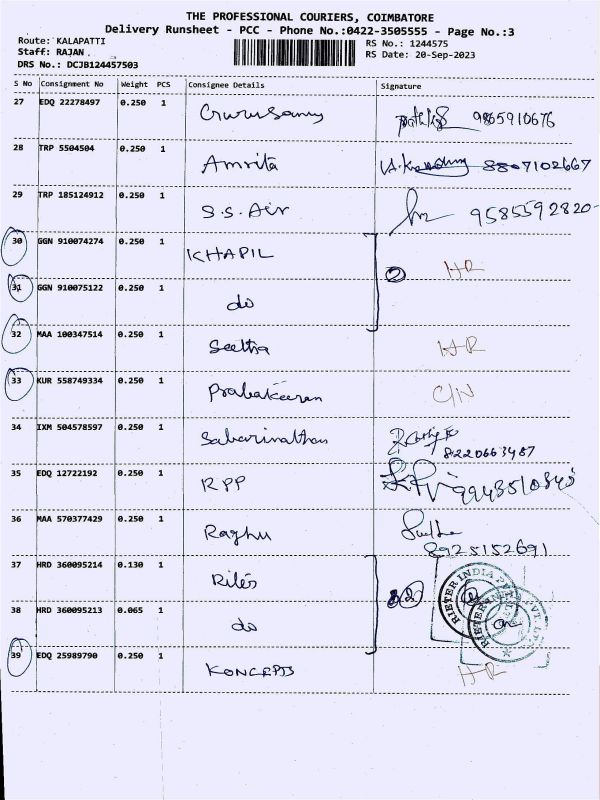 THE PROFESSIONAL COURIERS, COIMBATORE
Delivery Runsheet - PCC - Phone No.:0422-3505555 - Page No.:3
Route: KALAPATTI
Staff: RAJAN .
DRS No.: DCJB124457503
RS No.: 1244575
RS Date: 20-Sep-2023
S No Consignment No Weight PCS Consignee Details Signature
27 EDQ 22278497 0.250 1 Gurusamy 9865910676
28 TRP 5504504 0.250 1 Amrita 8807102667
29 TRP 185124912 0.250 1 S.S. Air 9585592820
30 GGN 910074274 0.250 1 KHAPIL
31 GGN 910075122 0.250 1 do 2 HR
32 MAA 100347514 0.250 1 Seetha HR
33 KUR 558749334 0.250 1 Prabakaran C/N
34 IXM 504578597 0.250 1 Sabarinathan 8220663487
35 EDQ 12722192 0.250 1 RPP 9943510345
36 MAA 570377429 0.250 1 Raghu
8925152691
37 HRD 360095214 0.130 1 2 RIETER INDIA
38 HRD 360095213 0.065 1 do
39 EDQ 25989790 0.250 1 KONCEPTS HR